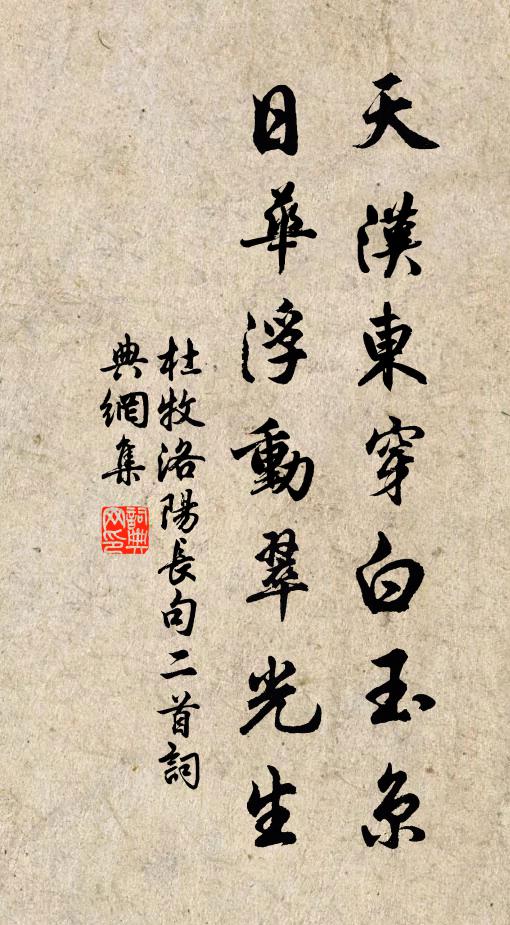 天漢東穿白玉京
日華浮動翠光生
杜牧洛陽長句二首詞
典網集
詞典
网印